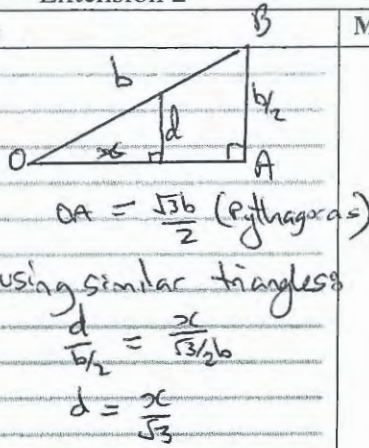 Extension 2
B
M
b
d
b/2
O
x
A
OA = √3b/2 (Pythagoras)
using similar triangles
d/b/2 = x/√3/2b
d = x/√3